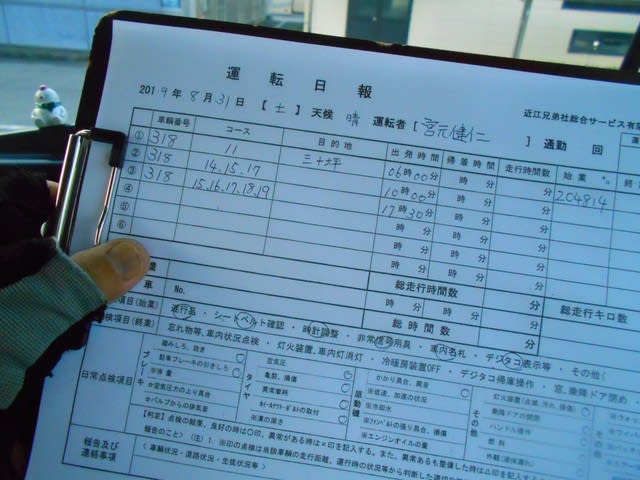 運転日報
2019年8月31日【土】天候 晴 運転者【宮元健仁】通勤 回
近江兄弟社総合サービス有限
車輌番号 コース 目的地 出発時間 帰着時間 走行時間数 始業
① 318 11 三十坪 06時00分 時 分 分 204814
② 318 14.15.17 10時00分 時 分 分
③ 318 15.16.17.18.19 17時30分 時 分 分
④ 時 分 時 分 分
⑤ 時 分 時 分 分
⑥ 時 分 時 分 分
総走行時間数 分
車 No. 時 分 時 分 総走行キロ数
総時間数 分
項目(始業) 運行表・シートベルト確認・時計調整・非常信号用具・車内名札・デジタコ表示等・その他(
検項目(終業) 忘れ物等、車内状況点検・灯火装置、車内灯消灯・冷暖房装置OFF・デジタコ帰庫操作・窓、乗降ドア閉め
日常点検項目
ブレーキ
踏みしろ、効き
駐車ブレーキの引きしろ
※液量
☆空気圧力の上り具合
☆バルブからの排気音
タイヤ
空気圧
亀裂、損傷
異常磨耗
☆ホイールナット・ボルトの取付
※溝の深さ
原動機
かかり具合、異音
※低速、加速の状態
※冷却水
※ファンベルトの張り具合、損傷
※エンジンオイルの量
その他
灯火装置(点滅、汚れ、損傷)
乗降ドアの開閉
ハンドル操作
燃料
外観(液体漏れ)
【判定】点検の結果、良好の時は〇印、異常がある時は×印を記入する。また、異常あるも整備した時は△印を記入する
報告のこと〉(注)1、※印の点検は当該車輌の走行距離、運行時の状況等から判断した適切な時
報告及び連絡事項
〈車輌状況・道路状況・生徒状況等〉